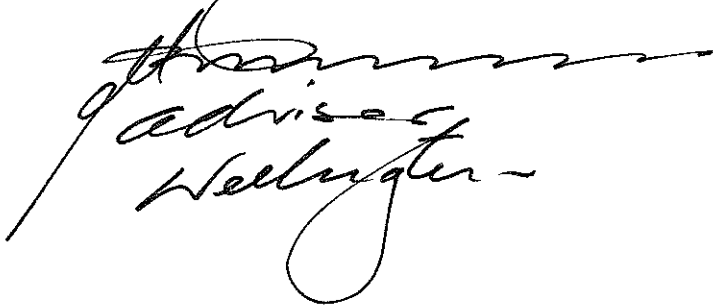 adviser
Wellington